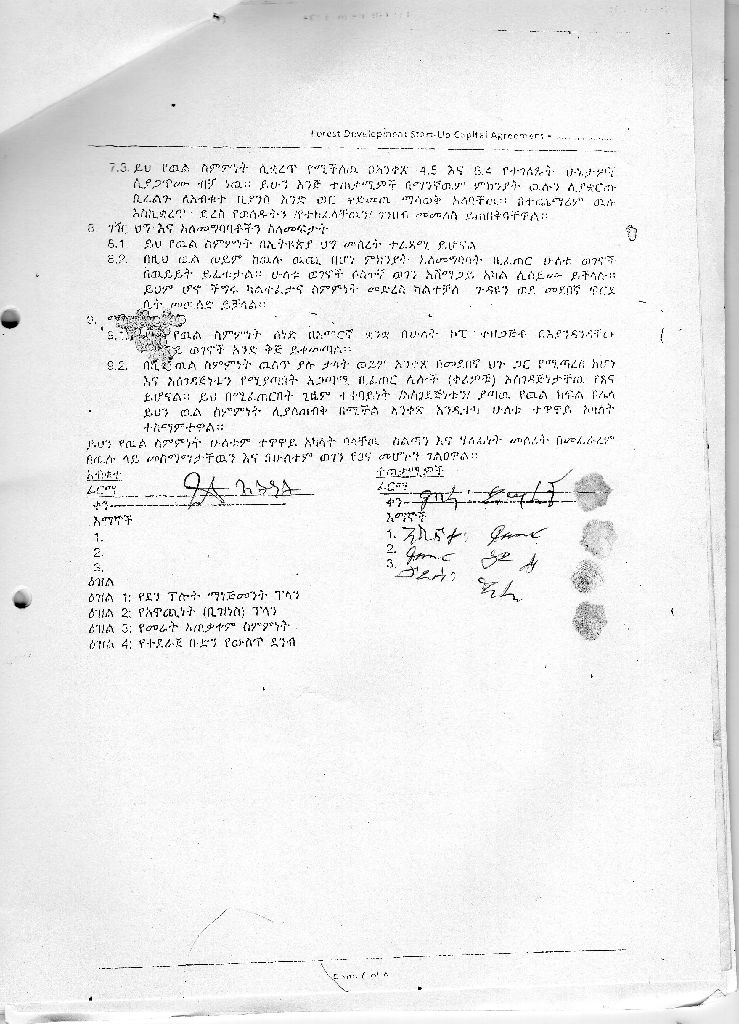 Forest Development Start-Up Capital Agreement -
7.3. ይህ የዉል ስምምነት ሊቋረጥ የሚችለዉ በአንቀጽ 4.5 እና 6.4 የተገለጹት ሁኔታዎች
ሲያጋጥሙ ብቻ ነዉ። ይሁን እንጅ ተጠቃሚዎች በማንኛዉም ምክንያት ዉሉን ሊያቋርጡ
ቢፈልጉ ለአብቁተ ቢያንስ አንድ ወር ቀድመዉ ማሳወቅ አለባቸዉ። በተጨማሪም ዉሉ
እስኪቋረጥ ድረስ የወሰዱትን /የተከፈላቸዉን/ ገንዘብ መመለስ ይጠበቅባቸዋል።
8. ገዥ ህግ እና አለመግባባቶችን ስለመፍታት
8.1 ይህ የዉል ስምምነት በኢትዮጵያ ህግ መሰረት ተፈጻሚ ይሆናል
8.2. በዚህ ዉል ወይም ከዉሉ ዉጪ በሆነ ምክንያት አለመግባባት ቢፈጠር ሁለቱ ወገኖች
በዉይይት ይፈቱታል። ሁለቱ ወገኖች ሶስተኛ ወገን አሸማጋይ አካል ሊሰይሙ ይችላሉ።
ይህም ሆኖ ችግሩ ካልተፈታና ስምምነት መድረስ ካልተቻለ ጉዳዩን ወደ መደበኛ ፍርድ
ቤት መዉሰድ ይቻላል።
9.
9.1. የዉል ስምምነት ሰነድ በአማርኛ ቋንቋ በሁለት ኮፒ ተዘጋጅቶ በእያንዳንዳቸዉ
ወገኖች አንድ ቅጅ ይቀመጣል።
9.2. በዚህ ዉል ስምምነት ዉስጥ ያሉ ቃላት ወይም አንቀጽ በመደበኛ ህጉ ጋር የሚጣረስ ከሆነ
እና አስገዳጅነቱን የሚያጣበት አጋጣሚ ቢፈጠር ሌሎች (ቀሪዎቹ) አስገዳጅነታቸዉ የጸና
ይሆናል። ይህ በሚፈጠርበት ጊዜም ተቀባይነት /አስገዳጅነቱን/ ያጣዉ የዉል ክፍል የሌላ
ይህን ዉል ስምምነት ሊያስጠብቅ በሚችል አንቀጽ እንዲተካ ሁለቱ ተዋዋይ አካላት
ተስማምተዋል።
ይህን የዉል ስምምነት ሁለቱም ተዋዋይ አካላት ባላቸዉ ስልጣን እና ሃላፊነት መሰረት በመፈራረም
በዉሉ ላይ መስማማታቸዉን እና በሁለተም ወገን የጸና መሆኑን ገልፀዋል።
አብቁተ
ተጠቃሚዎች
ፊርማ
ፊርማ
ቀን
ቀን
እማኞች
እማኞች
1.
1.
2.
2.
3.
3.
ዕዝል
ዕዝል 1: የደን ፕሎት ማነጅመንት ፕላን
ዕዝል 2: የአዋጪነት (ቢዝነስ) ፕላን
ዕዝል 3: የመሬት አጠቃቀም ስምምነት
ዕዝል 4: የተደራጀ ቡድን የውስጥ ደንብ